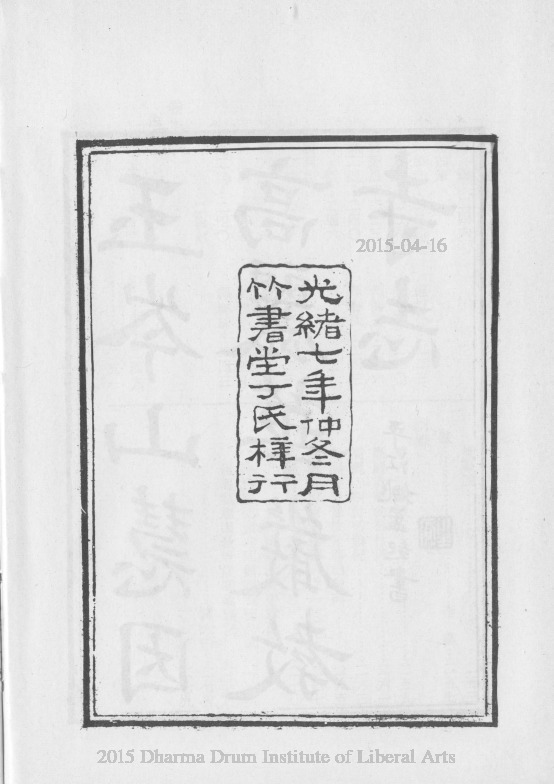 2015-04-16
光緒七年仲冬月
竹書堂丁氏梓行
2015 Dharma Drum Institute of Liberal Arts